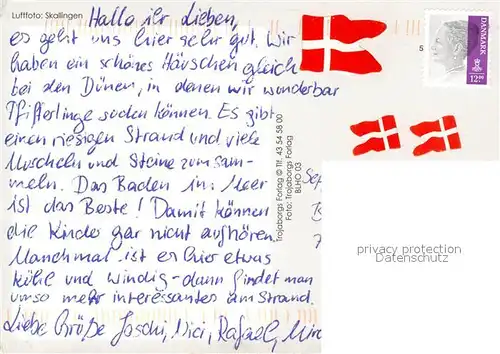 Luftfoto: Skallingen
Hallo ihr Lieben,
es geht uns hier sehr gut. Wir
haben ein schönes Häuschen gleich
bei den Dünen, in denen wir wunderbar
Pfifferlinge suchen können. Es gibt
einen riesigen Strand und viele
Muscheln und Steine zum sam-
meln. Das Baden im Meer
ist das Beste! Damit können
die Kinder gar nicht aufhören.
Manchmal ist es hier etwas
kühl und windig - dann findet man
umso mehr interessantes am Strand.
Liebe Grüße Joschi, Nici, Rafael,
Trojaborgs Forlag © Tlf. 43 54 58 00
Foto: Trojaborgs Forlag
BLHO 03
DANMARK
12.00
privacy protection
Datenschutz